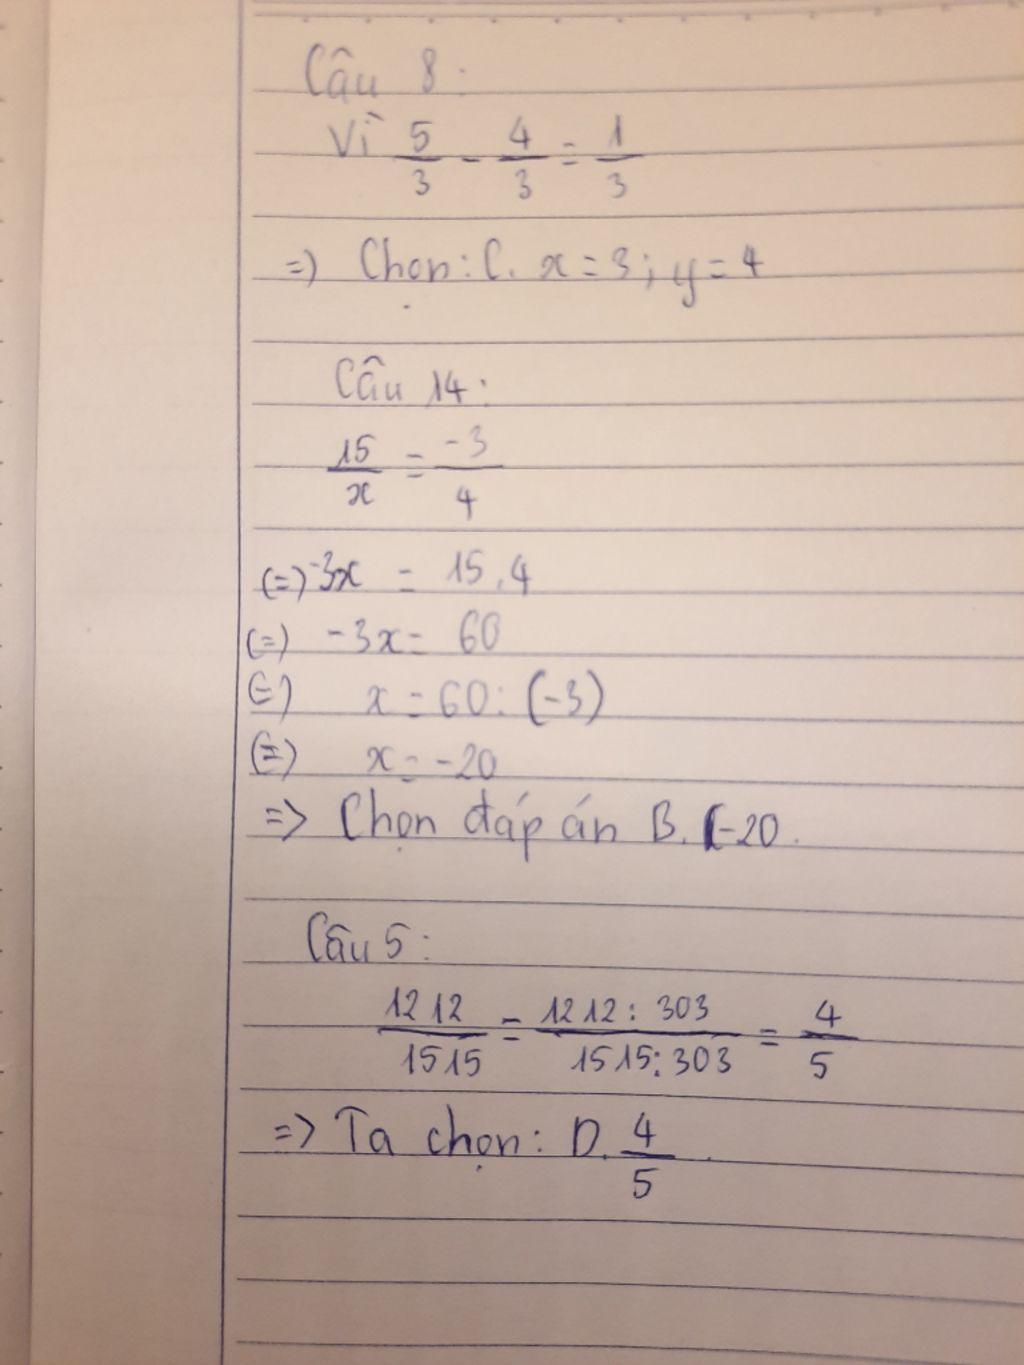 Câu 8:
Vì 5/3 - 4/3 = 1/3
=) Chọn: C. x = 3; y = 4
Câu 14:
15/x = -3/4
(=) -3x = 15.4
(=) -3x = 60
(=) x = 60: (-3)
(=) x = -20
=> Chọn đáp án B. (-20.
Câu 5:
1212/1515 = 1212: 303/1515: 303 = 4/5
=> Ta chọn: D. 4/5.